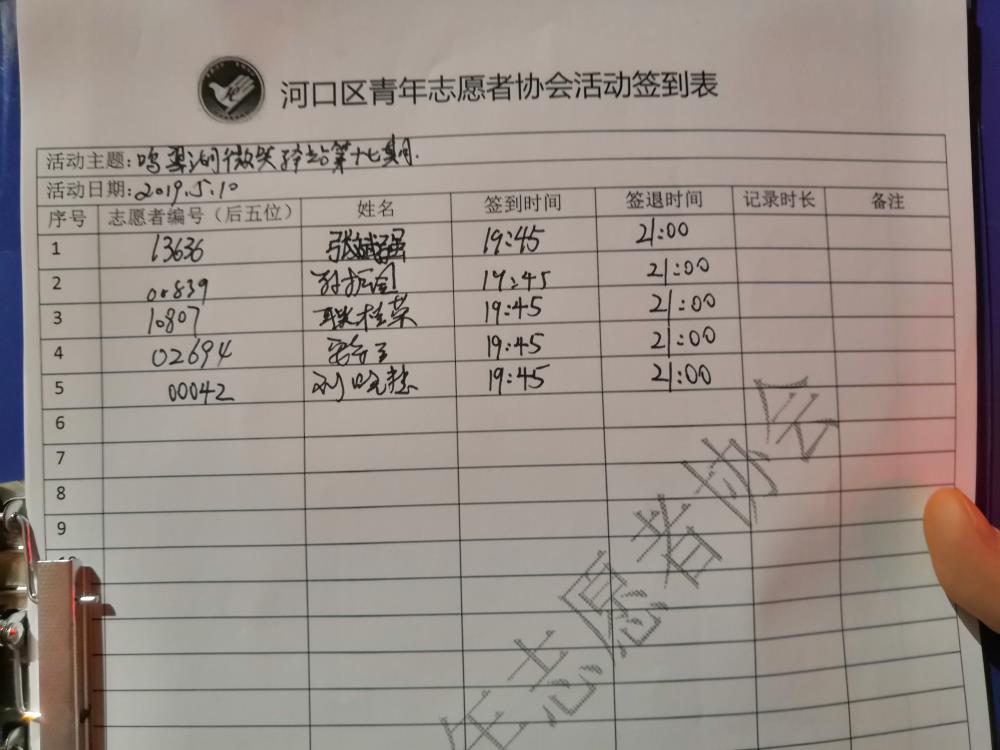 河口区青年志愿者协会活动签到表
活动主题:鸣翠湖微笑驿站第十七期.
活动日期:2019.5.10
序号 志愿者编号（后五位） 姓名 签到时间 签退时间 记录时长 备注
1 13636 张斌强 19:45 21:00
2 00839 19:45 21:00
3 10807 耿桂荣 19:45 21:00
4 02694 19:45 21:00
5 00042 刘晓慧 19:45 21:00
6
7
8
9
年志愿者协会